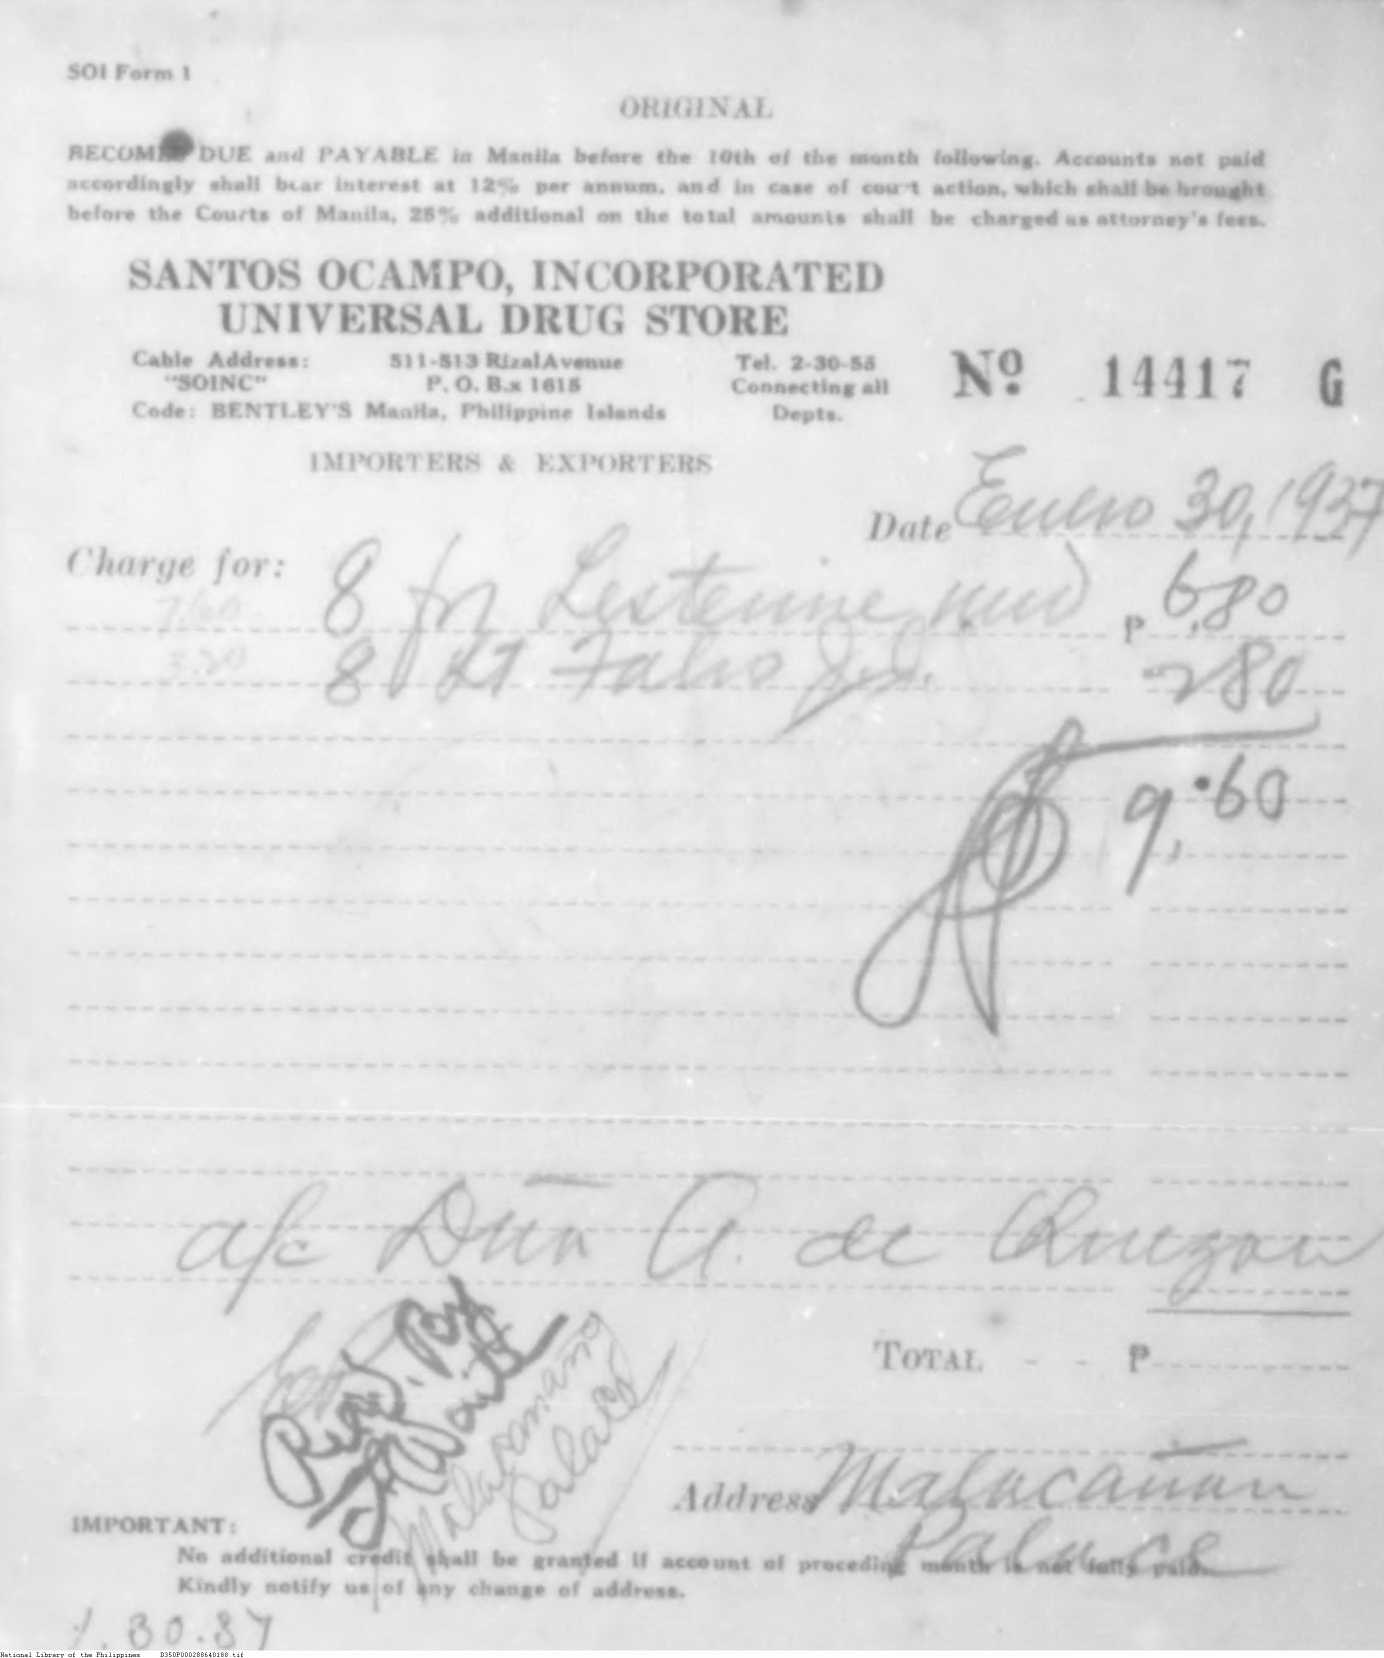 SOI Form 1
ORIGINAL
BECOMES DUE and PAYABLE in Manila before the 10th of the month following. Accounts not paid
accordingly shall bear interest at 12% per annum, and in case of court action, which shall be brought
before the Courts of Manila, 25% additional on the total amounts shall be charged as attorney's fees.
SANTOS OCAMPO, INCORPORATED
UNIVERSAL DRUG STORE
Cable Address: 511-513 Rizal Avenue Tel. 2-30-55
"SOINC" P. O. Box 1615 Connecting all
Code: BENTLEY'S Manila, Philippine Islands Depts.
Nº 14417 G
IMPORTERS & EXPORTERS
Date Enero 30, 1937
Charge for: 8 Listerine med ₱ 6,80
7.60
8 2.80
3.20
9.60
a/c Dña A. de Quezon
TOTAL - - ₱
Recd. By
Malacanang
Palace
Address Malacañan
Palace
IMPORTANT:
No additional credit shall be granted if account of proceding month is not fully paid.
Kindly notify us of any change of address.
1.30.37
National Library of the Philippines D350P000288640188.tif